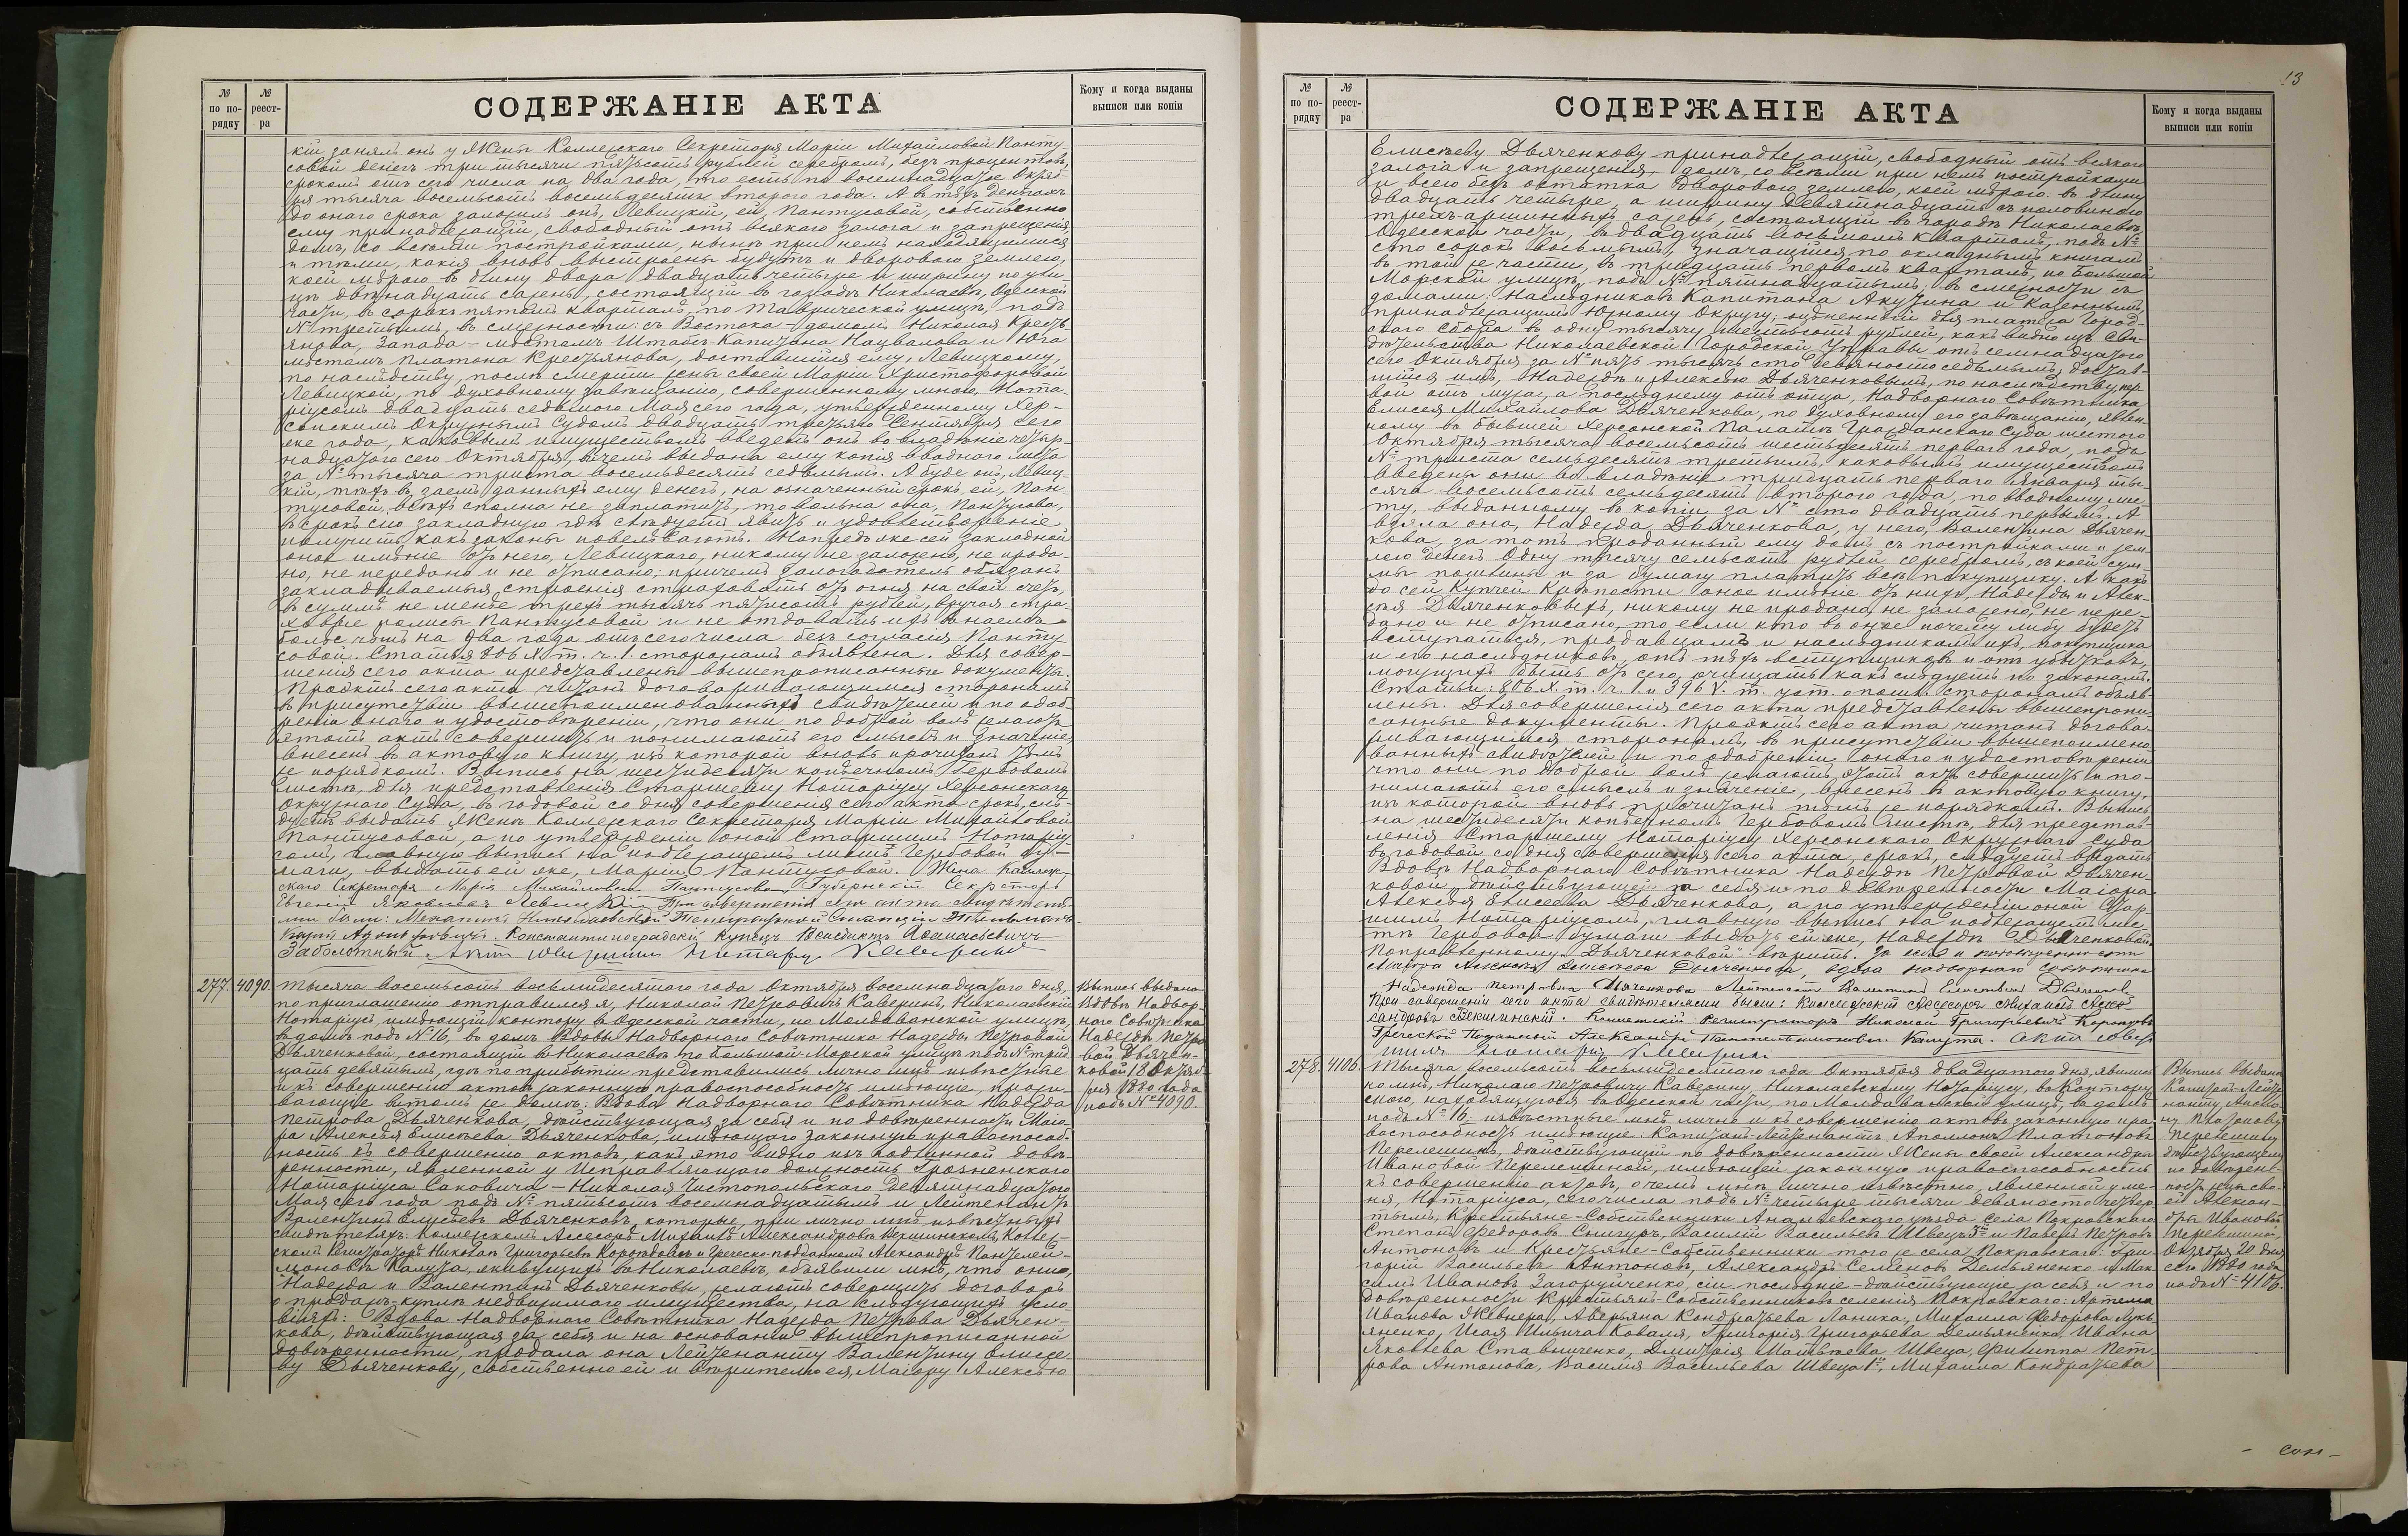 № по порядку
№ реестра
СОДЕРЖАНІЕ АКТА
Кому и когда выданы выписи или копіи
кій занялъ онъ у Жены Коллежскаго Секретаря Маріи Михайловой Панту-
совой денегъ три тысячи пятьсотъ рублей серебромъ, безъ процентовъ,
срокомъ отъ сего числа на два года, то есть по восемнадцатое Октяб-
ря тысяча восемьсотъ восемьдесятъ второго года. А въ тѣхъ деньгахъ
до онаго срока заложилъ онъ, Левицкій, ей, Пантусовой, собственно
ему принадлежащій, свободный отъ всякаго залога и запрещенія,
домъ, со всѣми постройками, нынѣ при немъ находящимися
и тѣми, какія вновь выстроены будутъ и дворовою землею,
коей мѣрою въ длину двора двадцать четыре и ширину по ули-
цѣ двѣнадцать сажень, состоящій въ городѣ Николаевѣ, Одесской
части, въ сорокъ пятомъ кварталѣ, по Таврической улицѣ, подъ
№ третьимъ, въ смежности: съ Востока – домомъ Николая Кресть-
янова, Запада – мѣстомъ Штабсъ-Капитана Нацвалова и Юга
мѣстомъ Платона Крестьянова, доставшійся ему, Левицкому,
по наслѣдству, послѣ смерти жены своей Маріи Христофоровой
Левицкой, по духовному завѣщанію, совершенному мною, Нота-
ріусомъ двадцать седьмого Мая сего года, утвержденному Хер-
сонскимъ Окружнымъ Судомъ двадцать третьяго Сентября сего
же года, каковымъ имуществомъ введенъ онъ во владѣніе четыр-
надцатого сего Октября, въ чемъ выдана ему копія вводнаго листа
за № тысяча триста восемьдесятъ седьмымъ. А буде онъ, Левиц-
кій, тѣхъ въ заемъ данныхъ ему денегъ, на означенный срокъ, ей, Пан-
тусовой, всѣхъ сполна не заплатитъ, то вольна она, Пантусова,
въ срокъ сію закладную гдѣ слѣдуетъ явить и удовлетвореніе
получить, какъ законы повелѣваютъ. Напредь же сей закладной
оное имѣніе отъ него, Левицкаго, никому не заложено, не прода-
но, не передано и не отписано; причемъ залогодатель обязанъ
закладываемыя строенія страховать отъ огня на свой счетъ,
въ суммѣ не менѣе трехъ тысячъ пятисотъ рублей, вручая стра-
ховые полисы Пантусовой и не отдавать ихъ въ наемъ
болѣе чѣмъ на два года отъ сего числа безъ согласія Панту-
совой. Статья 806 X т. ч. 1. сторонамъ объявлена. Для совер-
шенія сего акта представлены вышепрописанные документы.
Проэктъ сего акта читанъ договаривающимся сторонамъ
въ присутствіи вышепоименованныхъ свидѣтелей и по одоб-
реніи онаго и удостовѣреніи, что они по доброй волѣ желаютъ
этотъ актъ совершить и понимаютъ его смыслъ и значеніе,
внесенъ въ актовую книгу, изъ которой вновь прочитанъ тѣмъ
же порядкомъ. Выпись на шестидесяти копѣечномъ гербовомъ
листѣ, для представленія Старшему Нотаріусу Херсонскаго
Окружнаго Суда, въ годовой со дня совершенія сего акта срокъ, слѣ-
дуетъ выдать Женѣ Коллежскаго Секретаря Маріи Михайловой
Пантусовой, а по утвержденіи оной Старшимъ Нотаріу-
сомъ, главную выпись на подлежащемъ листѣ гербовой бу-
маги, выдать ей же, Маріи Пантусовой. Жена Коллеж-
скаго Секретаря Марія Михайловна Пантусова, Губернскій Секретарь
Евгеній Яковлевъ Левицкій. При совершеніи сего акта свидѣтеля-
ми были: Механикъ Николаевской Телеграфной Станціи
Карлъ Адольфовичъ Константиноградскій Купецъ Аѳанасьевичъ
Заболотный. Актъ совершилъ Нотаріусъ Каверинъ
277. 4090. Тысяча восемьсотъ восьмидесятого года Октября восемнадцатого дня,
по приглашенію отправился я, Николай Петровичъ Каверинъ, Николаевскій
Нотаріусъ, имѣющій контору въ Одесской части, по Молдаванской улицѣ,
въ домѣ подъ № 16, въ домъ Вдовы Надворнаго Совѣтника Надежды Петровой
Дьяченковой, состоящій въ Николаевѣ по Большой Морской улицѣ подъ № трид-
цать девятымъ, гдѣ по прибытіи представились лично мнѣ извѣстные
и къ совершенію актовъ законную правоспособность имѣющіе, прожи-
вающіе въ томъ же домѣ: Вдова Надворнаго Совѣтника Надежда
Петрова Дьяченкова, дѣйствующая за себя и по довѣренности Маіо-
ра Алексѣя Елисѣева Дьяченкова, имѣющаго законную правоспособ-
ность къ совершенію актовъ, какъ это видно изъ подлинной довѣ-
ренности, явленной у Исправляющаго должность Грозненскаго
Нотаріуса Саковича – Николая Чистопольскаго девятнадцатого
Мая сего года подъ № пятьсотъ восемнадцатымъ и Лейтенантъ
Валентинъ Елисѣевъ Дьяченковъ, которые, при лично мнѣ извѣстныхъ
свидѣтеляхъ: Коллежскомъ Ассесорѣ Михаилѣ Александровѣ Векшинскомъ, Коллеж-
скомъ Регистраторѣ Николаѣ Григорьевѣ Коротковѣ и Греческо-подданномъ Александрѣ Пантелей-
моновѣ Калута, живущихъ въ Николаевѣ, объявили мнѣ, что они,
Надежда и Валентинъ Дьяченковы, желаютъ совершить договоръ
о продажѣ-куплѣ недвижимаго имущества, на слѣдующихъ усло-
віяхъ: Вдова Надворнаго Совѣтника Надежда Петрова Дьячен-
кова, дѣйствующая за себя и на основаніи вышепрописанной
довѣренности, продала она Лейтенанту Валентину Елисѣе-
ву Дьяченкову, собственно ей и вѣрителю ея, Маіору Алексѣю
Выпись выдана
Вдовѣ Надвор-
наго Совѣтника
Надеждѣ Петро-
вой Дьячен-
ковой 18 Октяб-
ря 1880 года
подъ № 4090.
13
№ по порядку
№ реестра
СОДЕРЖАНІЕ АКТА
Кому и когда выданы выписи или копіи
Елисѣеву Дьяченкову принадлежащій, свободный отъ всякаго
залога и запрещенія, домъ, со всѣми при немъ постройками
и всею безъ остатка дворовою землею, коей мѣрою: въ длину
двадцать четыре, а ширину девятнадцать съ половиною
трехъ-аршинныхъ сажень, состоящій въ городѣ Николаевѣ,
Одесской части, въ двадцать восьмомъ кварталѣ, подъ №
сто сорокъ восьмымъ, значащійся по окладнымъ книгамъ
въ той же части, въ тридцать первомъ кварталѣ, по Большой
Морской улицѣ, подъ № пятнадцатымъ, въ смежности съ
домами: Наслѣдниковъ Капитана Акутина и Казеннымъ,
принадлежащимъ Южному Округу; оцѣненный для платежа Город-
скаго сбора въ одну тысячу шестьсотъ рублей, какъ видно изъ Сви-
дѣтельства Николаевской Городской Управы отъ семнадцатого
сего Октября за № пять тысячъ сто девяносто седьмымъ, достав-
шійся имъ, Надеждѣ и Алексѣю Дьяченковымъ, по наслѣдству, пер-
вой отъ мужа, а послѣднему отъ отца, Надворнаго Совѣтника
Елисея Михайлова Дьяченкова, по духовному его завѣщанію, явлен-
ному въ бывшей Херсонской Палатѣ Гражданскаго Суда шестого
Октября тысяча восемьсотъ шестьдесятъ перваго года, подъ
№ триста семьдесятъ третьимъ, каковымъ имуществомъ
введены они во владѣніе тридцать перваго Января ты-
сяча восемьсотъ семьдесятъ второго года, по вводному лис-
ту, выданному въ копіи за № сто двадцать первымъ. А
взяла она, Надежда Дьяченкова, у него, Валентина Дьячен-
кова, за тотъ проданный ему домъ съ постройками и зем-
лею денегъ Одну тысячу семьсотъ рублей серебромъ, съ коей сум-
мы пошлины и за бумагу платить все покупщику. А какъ
до сей Купчей Крѣпости оное имѣніе отъ нихъ, Надежды и Алек-
сѣя Дьяченковыхъ, никому не продано, не заложено, не пере-
дано и не отписано, то если кто въ оное почему либо будетъ
вступаться, продавцамъ и наслѣдникамъ ихъ, покупщика
и его наслѣдниковъ, отъ тѣхъ вступщиковъ и отъ убытковъ,
могущихъ быть отъ сего, очищать какъ слѣдуетъ по законамъ.
Статьи: 806 X. т. ч. 1. и 396 V. т. уст. о пошл. сторонамъ объяв-
лены. Для совершенія сего акта представлены вышепропи-
санные документы. Проэктъ сего акта читанъ догова-
ривающимся сторонамъ, въ присутствіи вышепоимено-
ванныхъ свидѣтелей и по одобреніи онаго и удостовѣреніи
что они по доброй волѣ желаютъ этотъ актъ совершить и по-
нимаютъ его смыслъ и значеніе, внесенъ въ актовую книгу,
изъ которой вновь прочитанъ тѣмъ же порядкомъ. Выпись
на шестидесяти копѣечномъ гербовомъ листѣ, для представ-
ленія Старшему Нотаріусу Херсонскаго Окружнаго Суда
въ годовой со дня совершенія сего акта, срокъ, слѣдуетъ выдать
Вдовѣ Надворнаго Совѣтника Надеждѣ Петровой Дьячен-
ковой, дѣйствующей за себя и по довѣренности Маіора
Алексѣя Елисѣева Дьяченкова, а по утвержденіи оной Стар-
шимъ Нотаріусомъ, главную выпись на подлежащемъ лис-
тѣ гербовой бумаги выдать ей же, Надеждѣ Дьяченковой.
Поправленному „Дьяченковой“ вѣрить. За себя и по довѣренности
Маіора Алексѣя Елисѣева Дьяченкова, вдова надворнаго совѣтника
Надежда Петровна Дьяченкова Лейтенантъ Валентинъ Елисѣевъ Дьяченковъ
При совершеніи сего акта свидѣтелями были: Коллежскій Ассесоръ Михаилъ Алек-
сандровъ Векшинскій. Коллежскій Регистраторъ Николай Григорьевичъ Коротковъ
Греческой Подданный Александръ Пантелеимоновъ Калута. Актъ совер
шилъ Нотаріусъ Каверинъ
278. 4106. Тысяча восемьсотъ восьмидесятаго года Октября двадцатого дня, явились
ко мнѣ, Николаю Петровичу Каверину, Николаевскому Нотаріусу, въ Контору
мою, находящуюся въ Одесской части, по Молдаванской улицѣ, въ домѣ
подъ № 16. извѣстные мнѣ лично и къ совершенію актовъ законную пра-
воспособность имѣющіе: Капитанъ-Лейтенантъ Аполлонъ Платоновъ
Перелешинъ, дѣйствующій по довѣренности Жены своей Александры
Ивановой Перелешиной, имѣющей законную правоспособность
къ совершенію актовъ, о чемъ мнѣ лично извѣстно, явленной у ме-
ня, Нотаріуса, сего числа подъ № четыре тысячи девяносто четвер-
тымъ; Крестьяне-Собственники Ананьевскаго уѣзда села Покровскаго
Степанъ Федоровъ Снигуръ, Василій Васильевъ Швецъ 3й и Павелъ Петровъ
Антоновъ и Крестьяне-Собственники того же села Покровскаго: Гри-
горій Васильевъ Антоновъ, Александръ Семеновъ Демьяненко и Мак-
симъ Ивановъ Загоруйченко, сіи послѣдніе – дѣйствующіе за себя и по
довѣренности Крестьянъ-Собственниковъ селенія Покровскаго: Артема
Иванова Аверьяна Кондратьева Ланика, Михаила Федорова Лукь-
яненко, Исая Ильича Коваля, Григорія Григорьева Демьяненко, Ивана
Яковлева Ставниченко, Дмитрія Матвѣева Швеца, Филиппа Пет-
рова Антонова, Василія Васильева Швеца 1го, Михаила Кондратьева
Выпись выдана
Капитан-Лейте-
нанту Аполло-
ну Платонову
Перелешину
дѣйствующему
по довѣрен-
ности жены сво-
ей Алексан-
дры Ивановой
Перелешиной,
Октября 20 дня
сего 1880 года
подъ № 4106.